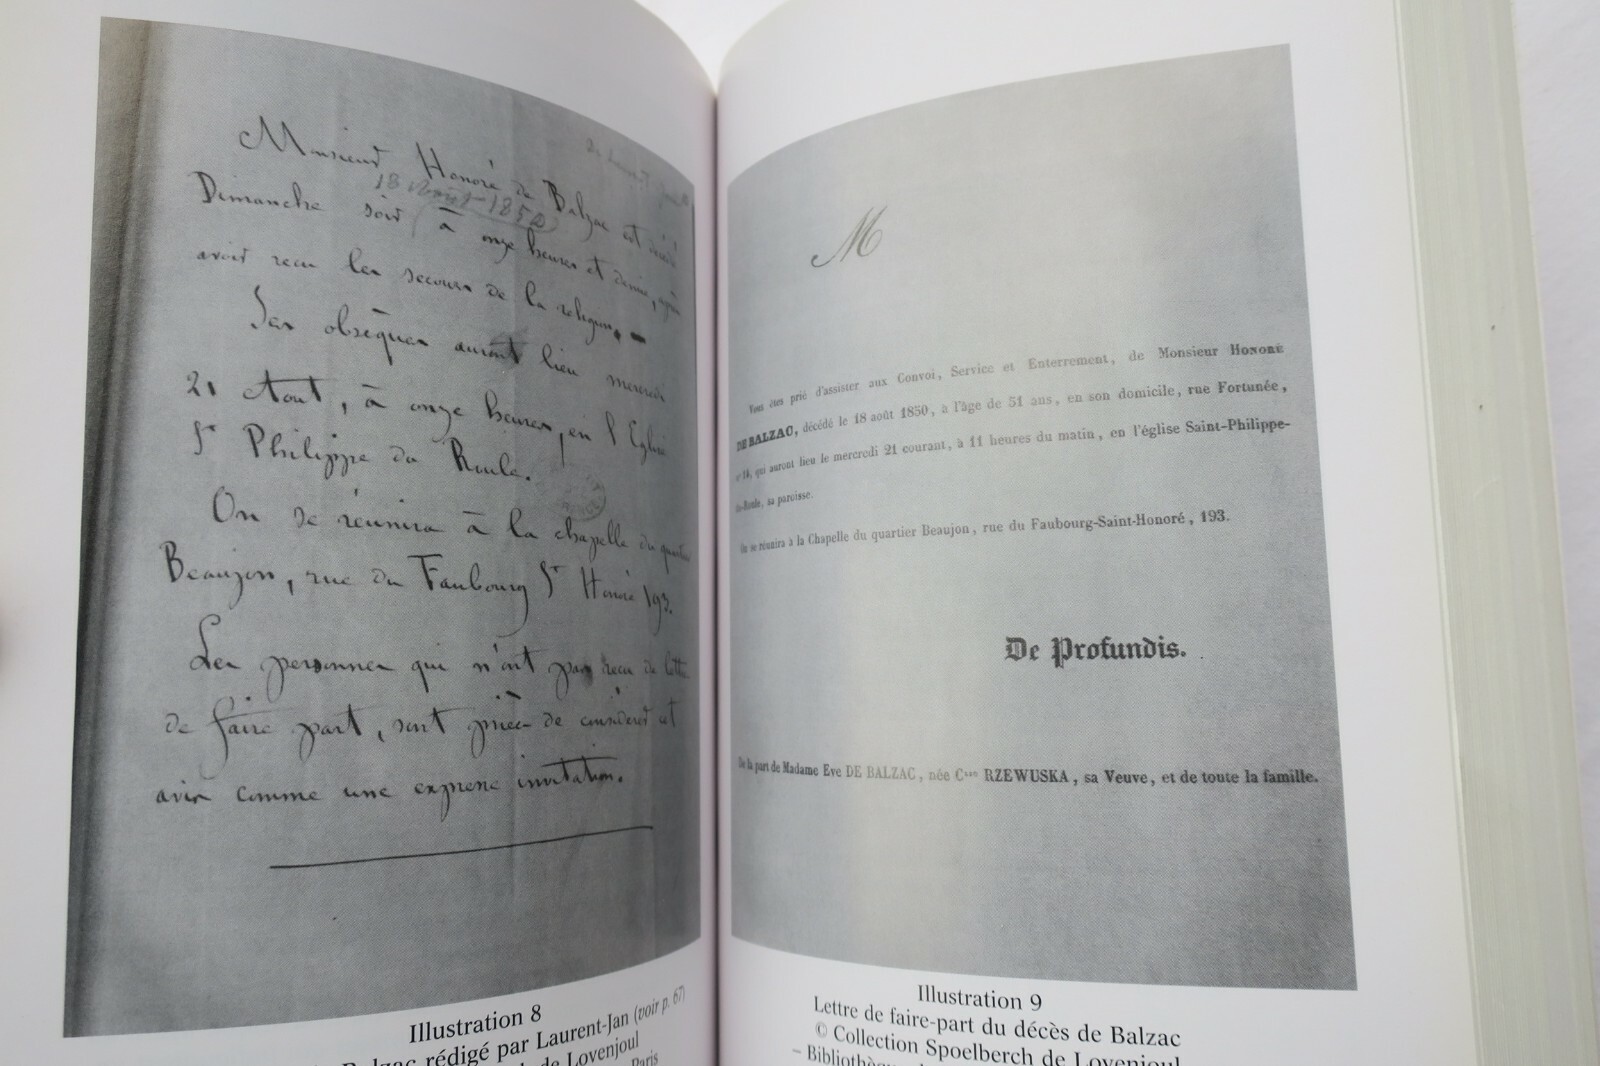 Monsieur Honoré de Balzac est décédé
18 Août 1850
Dimanche soir à onze heures et demie, après
avoir reçu les secours de la religion. —
Ses obsèques auront lieu mercredi
21 Aout, à onze heures, en l'Eglise
St Philippe du Roule.
On se réunira à la chapelle du quartier
Beaujon, rue du Faubourg St Honoré 193.
Les personnes qui n'ont pas reçu de lettre
de faire part, sont priées de considérer cet
avis comme une expresse invitation.
Illustration 8
Balzac rédigé par Laurent-Jan (voir p. 67)
de Lovenjoul
Paris
M
Vous êtes prié d'assister aux Convoi, Service et Enterrement, de Monsieur HONORÉ
DE BALZAC, décédé le 18 août 1850, à l'âge de 51 ans, en son domicile, rue Fortunée,
n° 14, qui auront lieu le mercredi 21 courant, à 11 heures du matin, en l'église Saint-Philippe-
du-Roule, sa paroisse.
On se réunira à la Chapelle du quartier Beaujon, rue du Faubourg-Saint-Honoré, 193.
De Profundis.
De la part de Madame Eve DE BALZAC, née Csse RZEWUSKA, sa Veuve, et de toute la famille.
Illustration 9
Lettre de faire-part du décès de Balzac
© Collection Spoelberch de Lovenjoul
– Bibliothèque